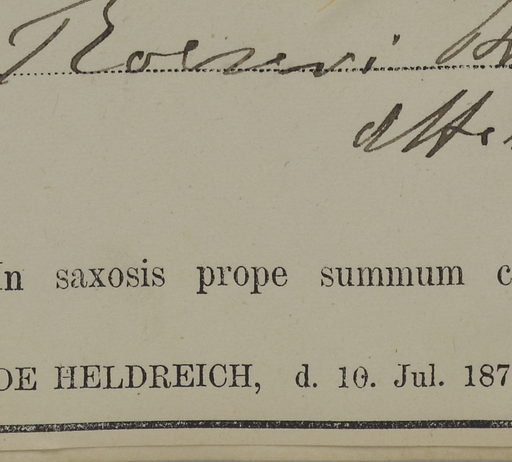 Roeseri
In saxosis prope summum c
DE HELDREICH, d. 10. Jul. 187